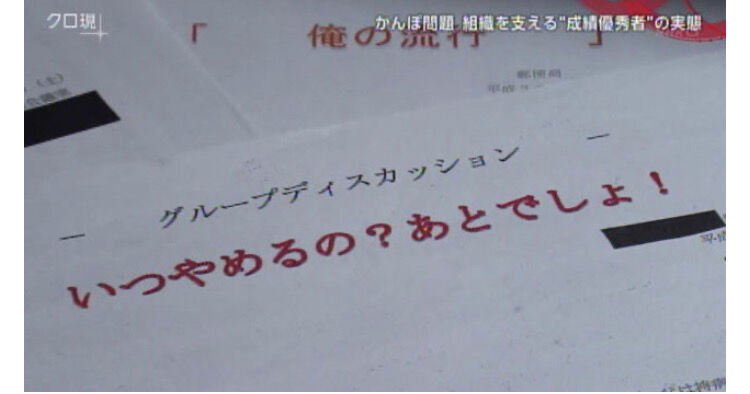 クロ現
かんぽ問題 組織を支える"成績優秀者"の実態
「 俺の流行 」
郵便局
平成
― グループディスカッション ―
いつやめるの？あとでしょ！